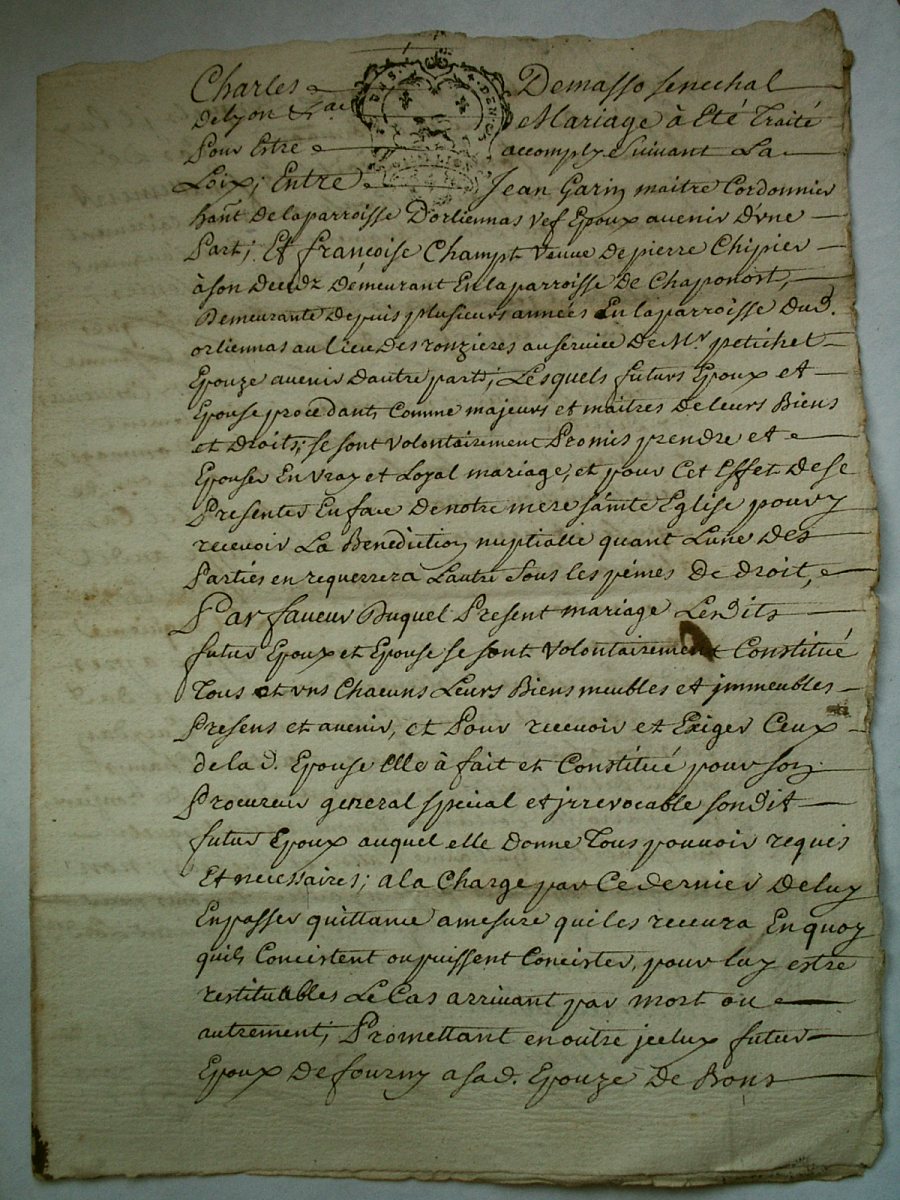 Charles Demasso senechal
De lyon &.ae Mariage à Eté Traité
Pour Estre accomply Suivant La
Loix; Entre Jean Garin maitre Cordonnier
hañt De la parroisse D'orliennas vef Epoux avenir D'vne
Part; Et francoise Champt Veuue De pierre Chipier
à son Decedz Demeurant En la parroisse De Chaponost,
Demeurante Depuis plusieurs années En la parroisse Dud.
orliennas au lieu Des ronzieres au service De Mr. petichet
Epouze avenir Dautre part; Lesquels futurs Epoux et
Epouse procedants Comme majeurs et maitres De leurs Biens
et Droits; se sont Volontairement Promis prendre et
Epouser En vray et Loyal mariage, et pour Cet Effet De se
Presenter En face De notre mere sainte Eglise pour y
recevoir La Benediction nuptialle quant Lune Des
Parties en requerrera Lautre Sous les peines De Droit,
Par faveur Duquel Present mariage Les Dits
futur Epoux et Epouse se sont Volontairement Constitué
Tous et vns Chacuns Leurs Biens meubles et jmmeubles
Presens et avenir, et Pour recevoir et Exiger Ceux
de la d. Epouse Elle à fait et Constitué pour son
Procureur general special et jrrevocable son Dit
futur Epoux auquel elle Donne Tous pouvoir requis
Et necessaires; a la Charge par Ce dernier De luy
En passer quittance a mesure qu'il les recevra En quoy
quils Concistent ou puissent Concister, pour luy estre
restituables Le Cas arrivant par mort ou
autrement; Promettant en outre jcelux futur
Epoux De fourny a sa d. Epouze De Bons